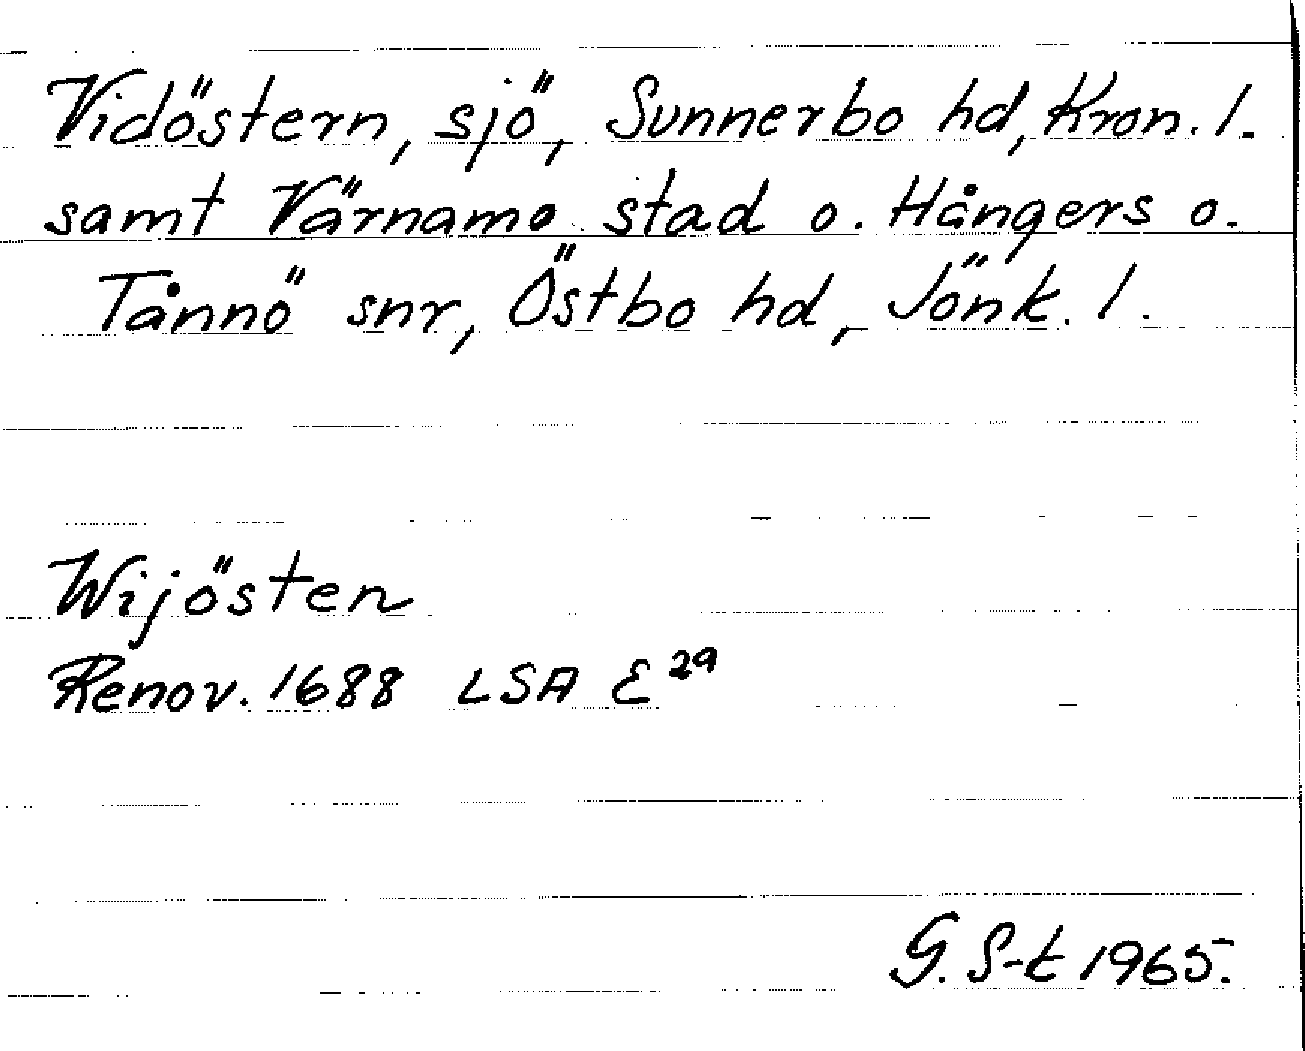 Vidöstern, sjö, Sunnerbo hd, Kron. l.
samt Värnamo stad o. Hångers o.
Tånnö snr, Östbo hd, Jönk. l.
Wijösten
Renov. 1688 LSA E 29
G. S-t 1965.